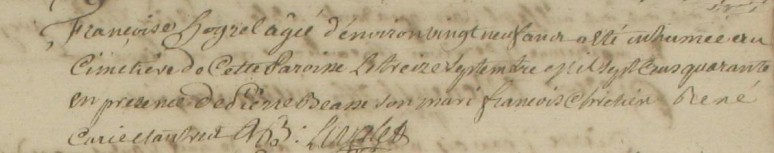 Françoise Hogrel agée d'environ vingt neuf ans a été inhumée au
Cimetière de Cette Paroisse Le treize Septembre mil Sept Cens quarante
en presence de Pierre Beane son mari françois Chretien René
Carie et autres